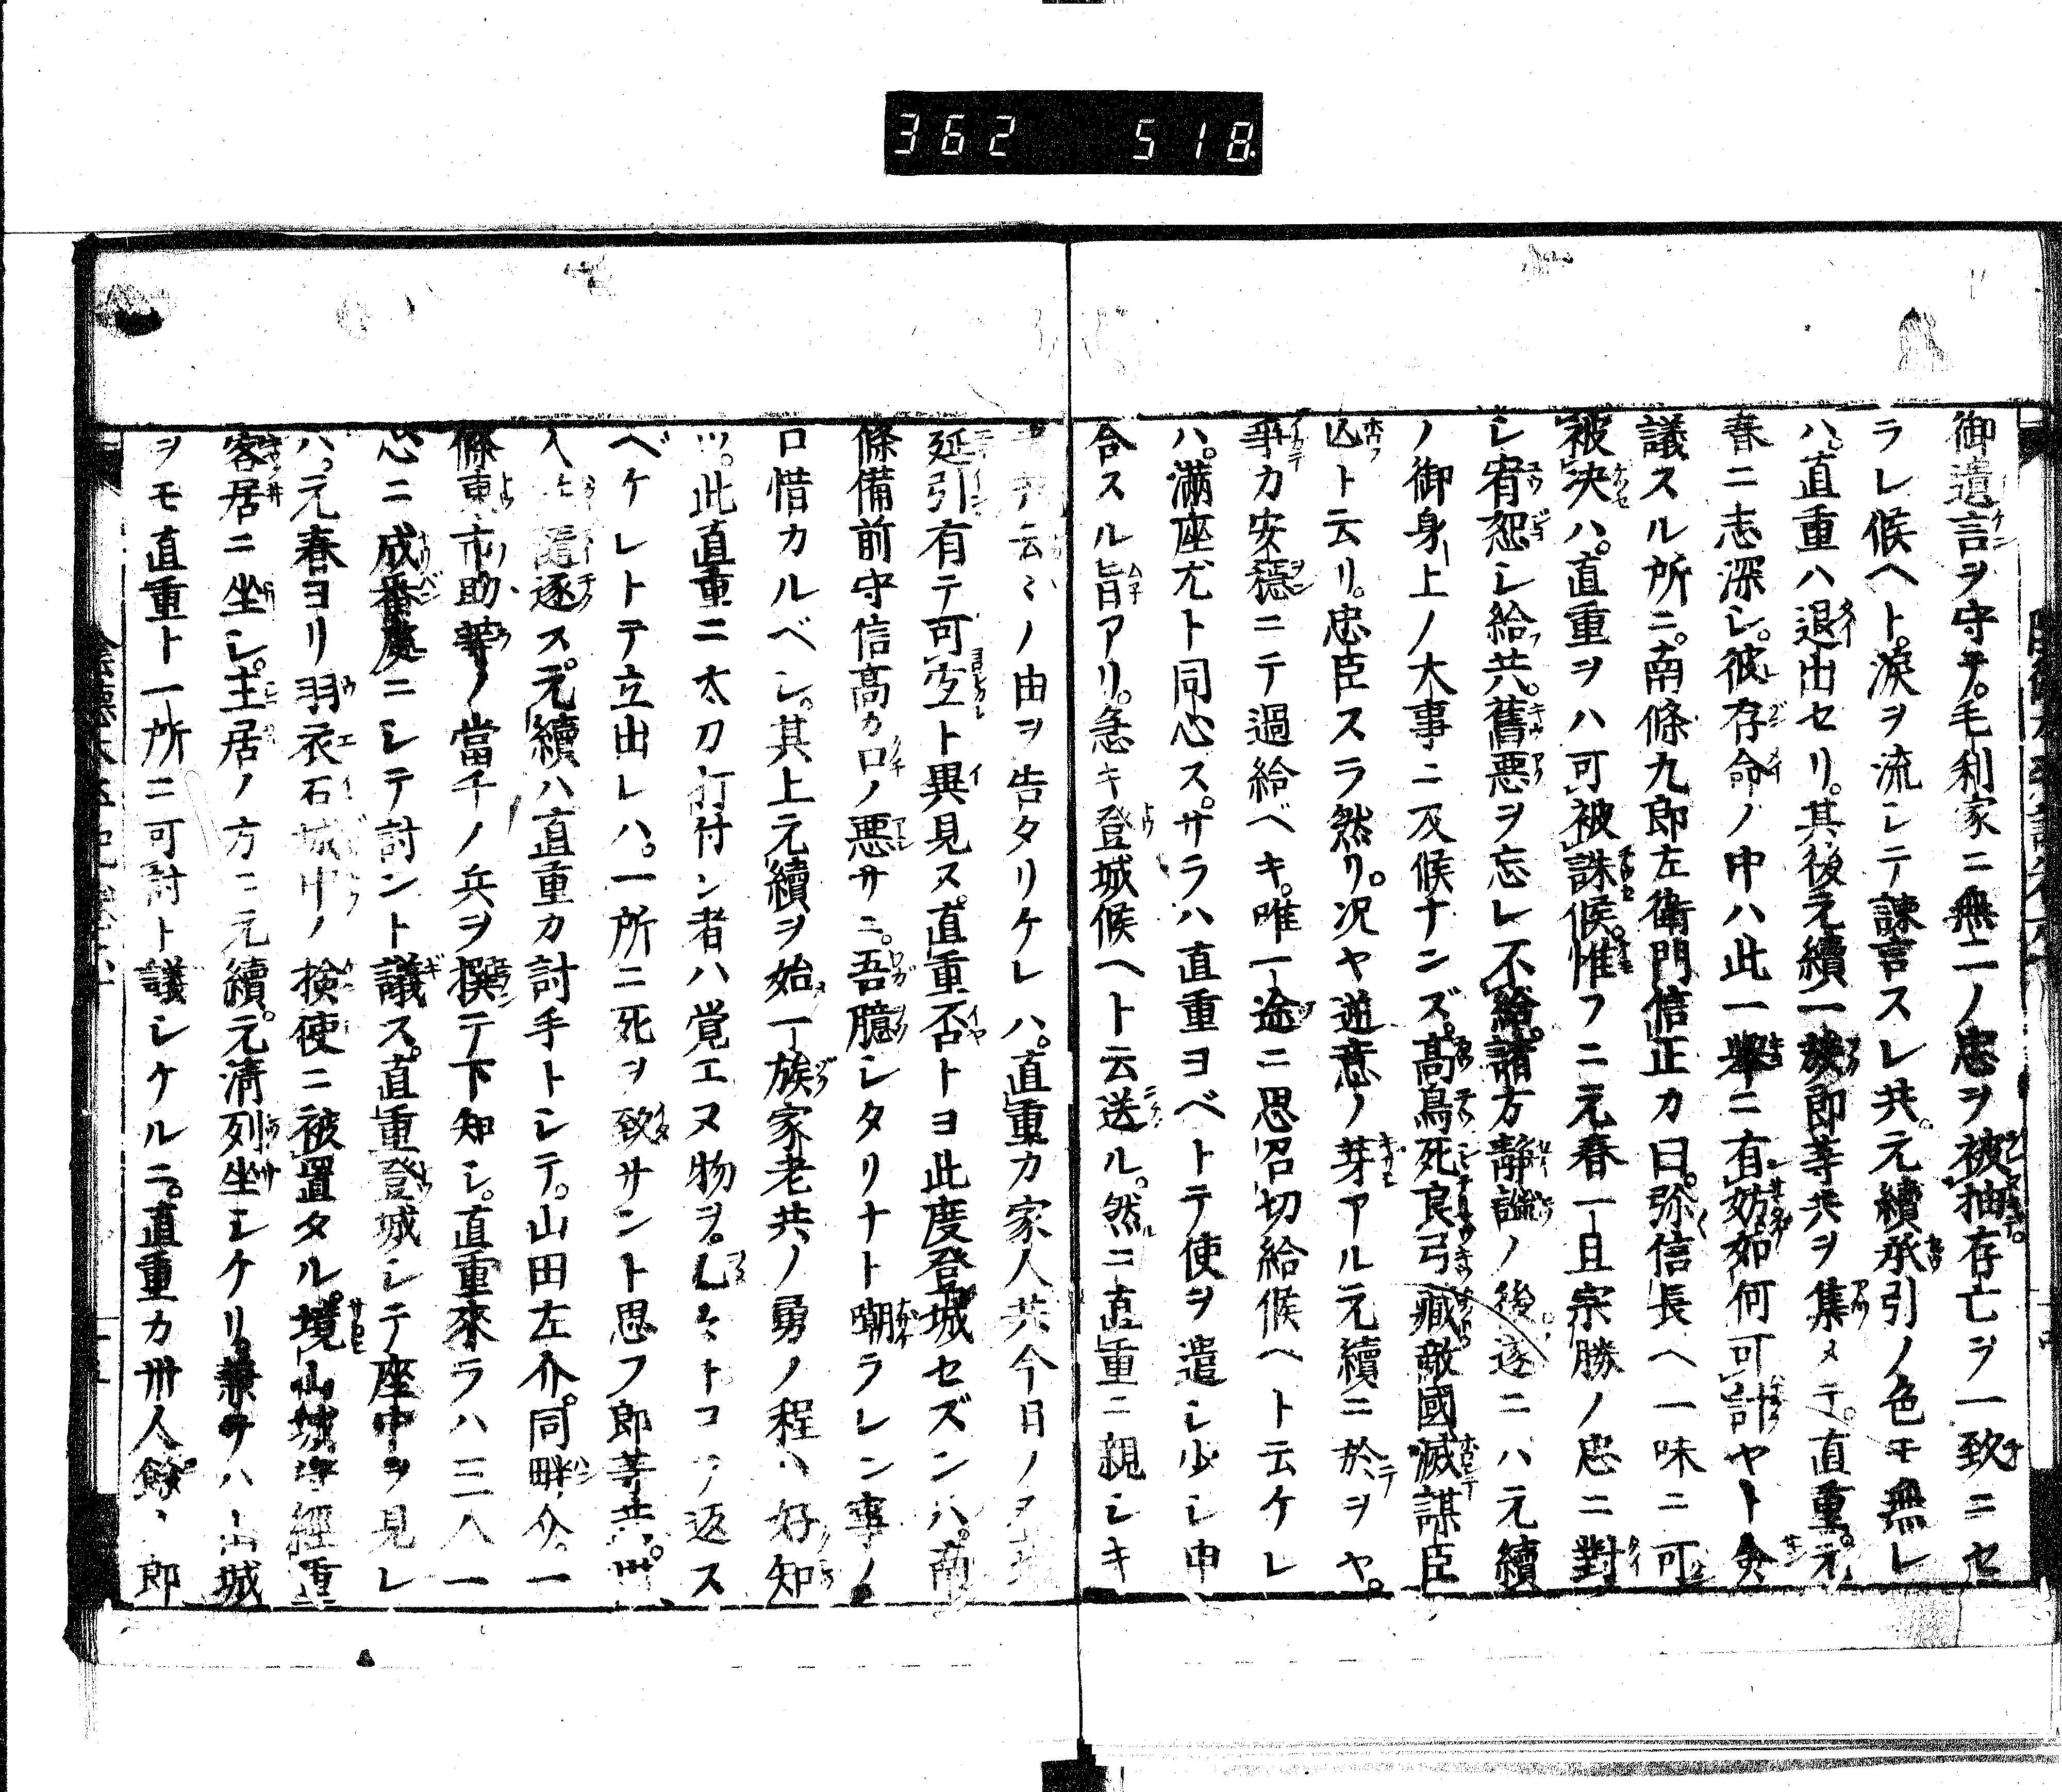 362 518
御遺言ヲ守テ。毛利家ニ無二ノ忠ヲ被抽存亡ヲ一致ニセ
ラレ候ヘト。涙ヲ流シテ諫言スレ共。元續承引ノ色モ無レ
ハ。直重ハ退出セリ。其後元續一族郎等共ヲ集メテ。直重。元
春ニ志深シ。彼存命ノ中ハ此一擧ニ有妨如何可計ヤト僉
議スル所ニ。南條九郎左衛門信正カ曰。弥信長ヘ一味ニ可
被决ハ。直重ヲハ可被誅候。惟フニ元春一旦宗勝ノ忠ニ對
シ宥恕シ給共。舊悪ヲ忘レ不給。諸方靜謐ノ後遂ニハ元續
ノ御身上ノ大事ニ及候ナンズ。髙鳥死良弓藏敵國滅謀臣
亾ト云リ。忠臣スラ然リ。况ヤ逆意ノ芽アル元續ニ於ヲヤ。
爭カ安穏ニテ過給ベキ。唯一途ニ思召切給候ヘト云ケレ
ハ。滿座尤ト同心ス。サラハ直重ヨベトテ使ヲ遣シ少シ申
合スル旨アリ。急キ登城候ヘト云送ル。然ニ直重ニ親シキ
云ミノ由ヲ告タリケレハ。直重カ家人共今日ノ
延引有テ可宜ト異見ス。直重否トヨ此度登城セズンハ。南
條備前守信髙カ口ノ悪サニ。吾臆シタリナト嘲ラレン事ノ
口惜カルベシ。其上元續ヲ始一族家老共ノ勇ノ程ハ好知
ツ。此直重ニ太刀打付ン者ハ覚エヌ物ヲ。トコソ返ス
ベケレトテ立出レハ。一所ニ死ヲ致サント思フ郎等共。卅
人追逐ス。元續ハ直重カ討手トシテ。山田左介。同畔介。一
條東市助等ノ當千ノ兵ヲ撰テ下知シ。直重來ラハ三人一
心ニ成番度ニシテ討ント議ス。直重登城シテ座中ヲ見レ
ハ。元春ヨリ羽衣石城中ノ検使ニ被置タル。境山城守經重
客居ニ坐シ。主居ノ方ニ元續。元清列坐シケリ。兼テハ山城
ヲモ直重ト一所ニ可討ト議シケルニ。直重カ卅人餘ヽ郎